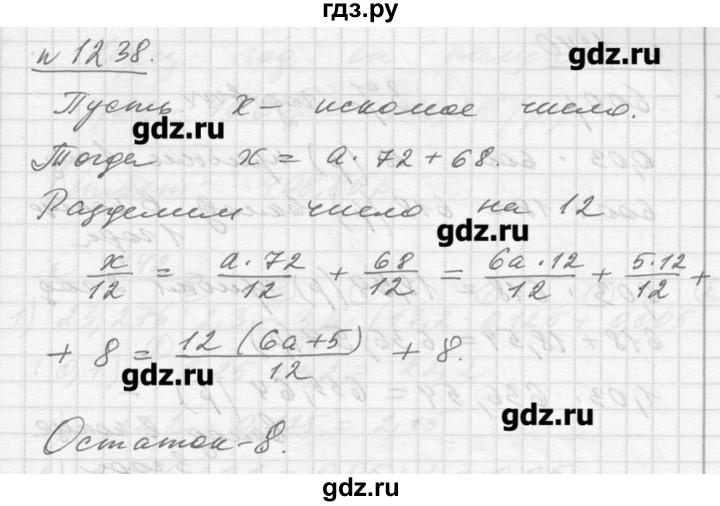 гдз.ру
n 1238.
gdz.ru
Пусть x - искомое число.
gdz.ru
Тогда x = a · 72 + 68.
Разделим число на 12
gdz.ru
x/12 = a·72/12 + 68/12 = 6a·12/12 + 5·12/12 +
+ 8 = 12 (6a+5)/12 + 8.
gdz.ru
gdz.ru
Остаток - 8.
gdz.ru